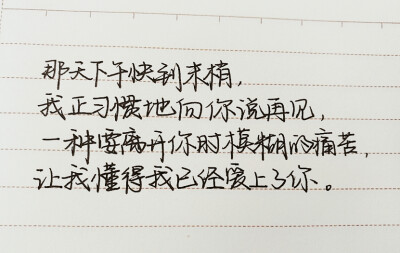 那天下午快到末梢，
我正习惯地向你说再见，
一种要离开你时模糊的痛苦，
让我懂得我已经爱上了你。